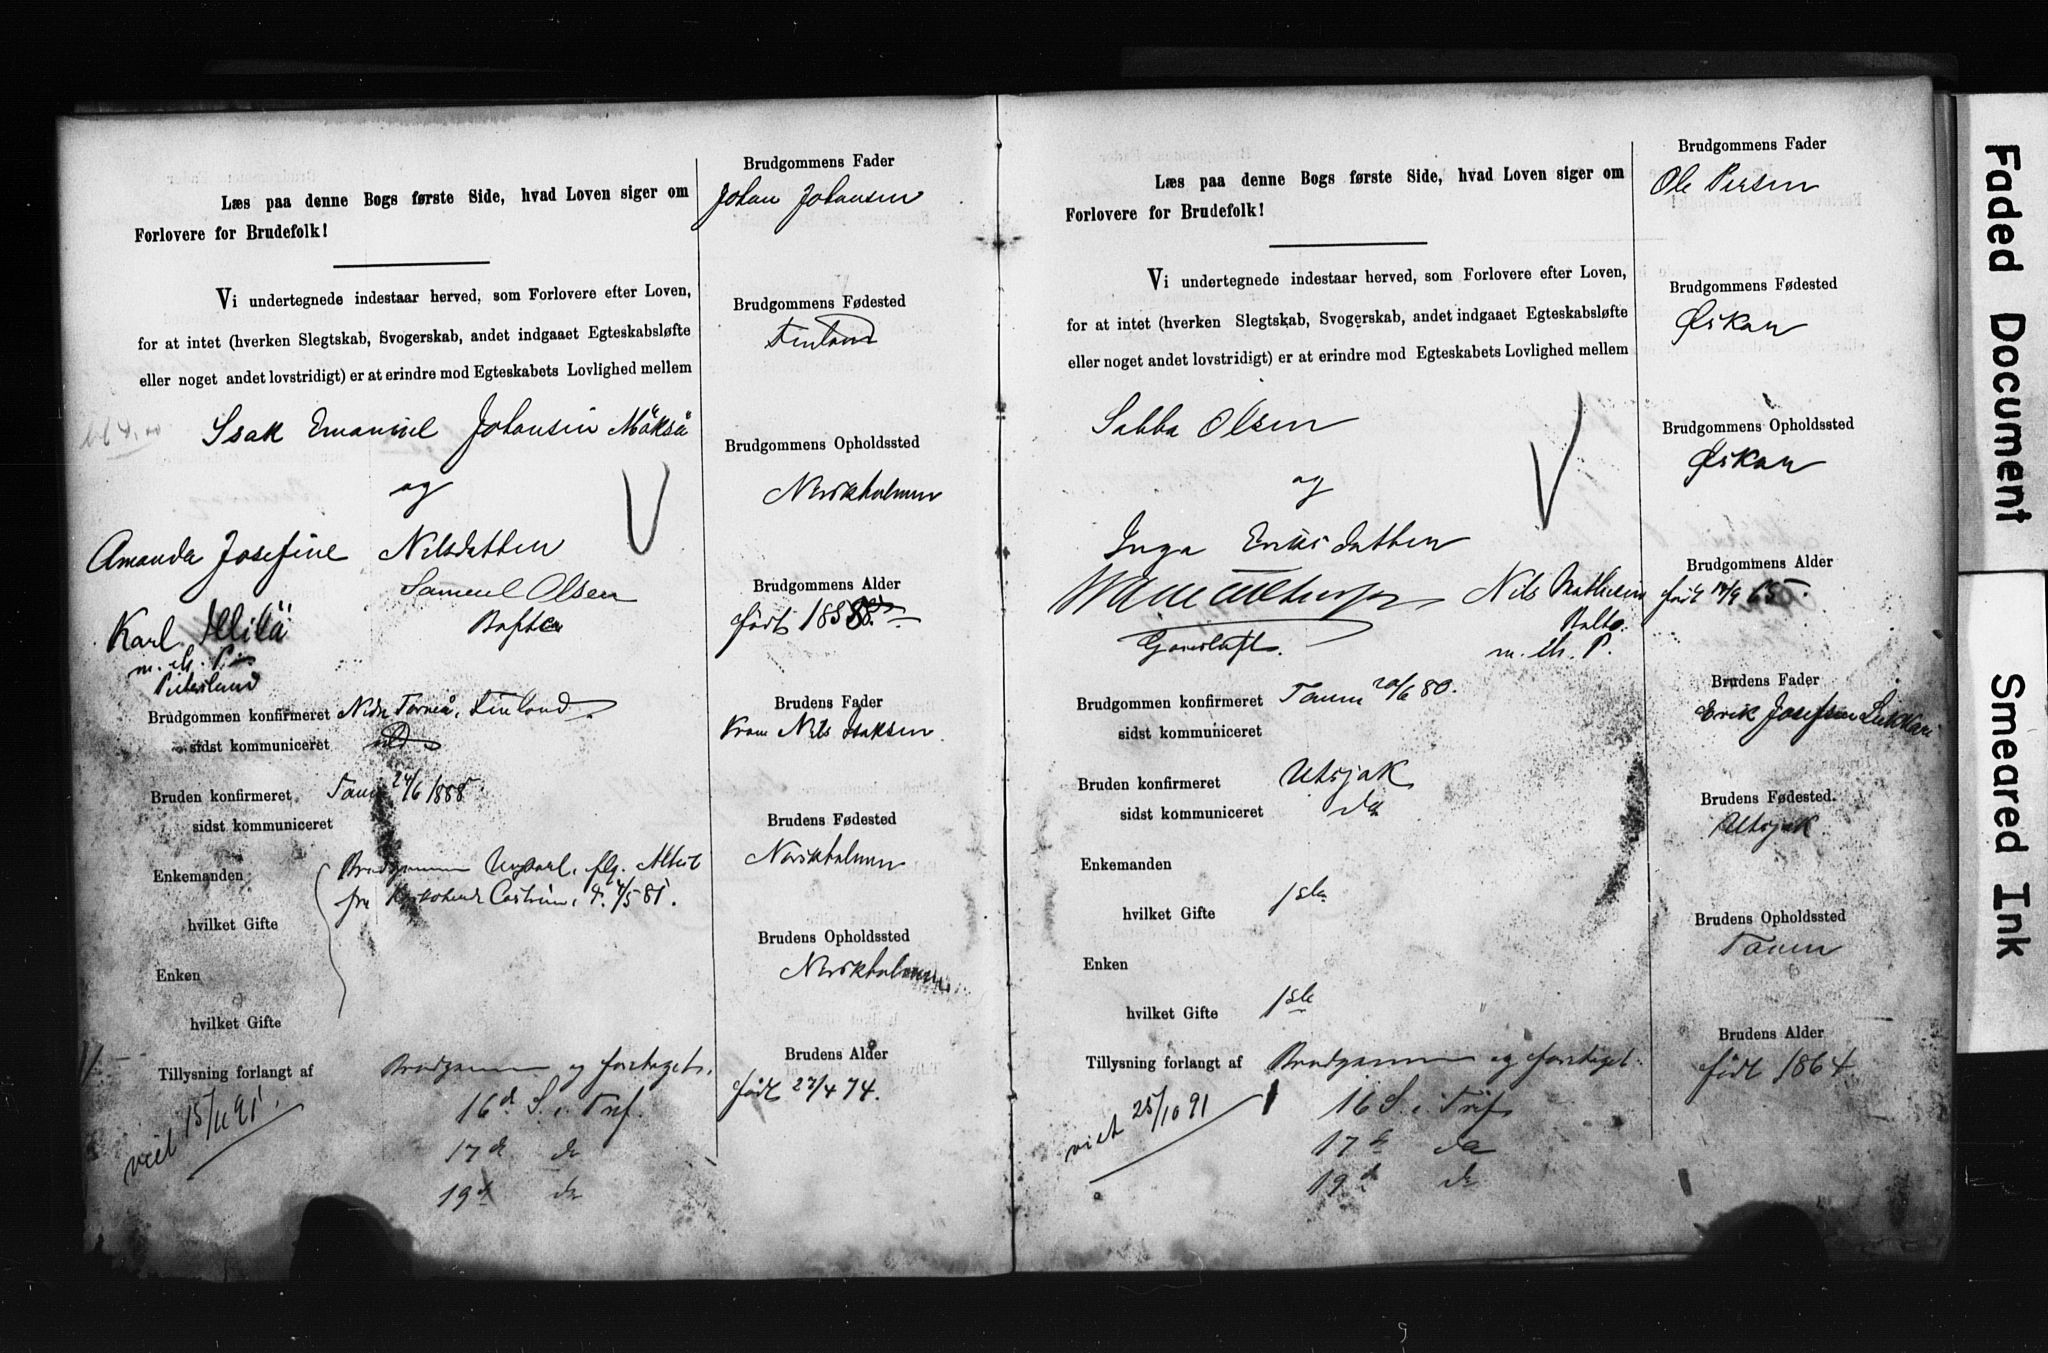 Læs paa denne Bogs første Side, hvad Loven siger om
Forlovere for Brudefolk!
Vi undertegnede indestaar herved, som Forlovere efter Loven,
for at intet (hverken Slegtskab, Svogerskab, andet indgaaet Egteskabsløfte
eller noget andet lovstridigt) er at erindre mod Egteskabets Lovlighed mellem
Isak Emanuel Johansen
og
Amanda Josefine Nilsdatter
Samuel Olsen
Karl
Brudgommen konfirmeret Nedr Torneå, Finland
sidst kommuniceret
Bruden konfirmeret Tanen 24/6 1888
sidst kommuniceret
Enkemanden
Brudgommen Attest
fra
hvilket Gifte
Enken
hvilket Gifte
Tillysning forlangt af Brudgommen og foretaget:
16d S. e. Tref.
17d do
19d do
viet 15/11 91.
Brudgommens Fader
Johan Johansen
Brudgommens Fødested
Finland
Brudgommens Opholdssted
Nerskholmen
Brudgommens Alder
født
Brudens Fader
Nils Isaksen
Brudens Fødested
Nerskholmen
Brudens Opholdssted
Nerskholmen
Brudens Alder
født 27/4 74.
Læs paa denne Bogs første Side, hvad Loven siger om
Forlovere for Brudefolk!
Vi undertegnede indestaar herved, som Forlovere efter Loven,
for at intet (hverken Slegtskab, Svogerskab, andet indgaaet Egteskabsløfte
eller noget andet lovstridigt) er at erindre mod Egteskabets Lovlighed mellem
Sabba Olsen
og
Inga Eriksdatter
Nils Mathisen
Balto
m. ih. P.
Brudgommen konfirmeret Tanen 20/6 80.
sidst kommuniceret
Bruden konfirmeret Utsjok
sidst kommuniceret do
Enkemanden
hvilket Gifte 1ste
Enken
hvilket Gifte 1ste
Tillysning forlangt af Brudgommen og foretaget:
16 S. e. Tref
17d do
19d do
viet 25/10 91
Brudgommens Fader
Ole Persen
Brudgommens Fødested
Øskan
Brudgommens Opholdssted
Øskan
Brudgommens Alder
født 14/9 65.
Brudens Fader
Erik Josefsen
Brudens Fødested.
Utsjok
Brudens Opholdssted
Tanen
Brudens Alder
født 1864
Faded Document
Smeared Ink